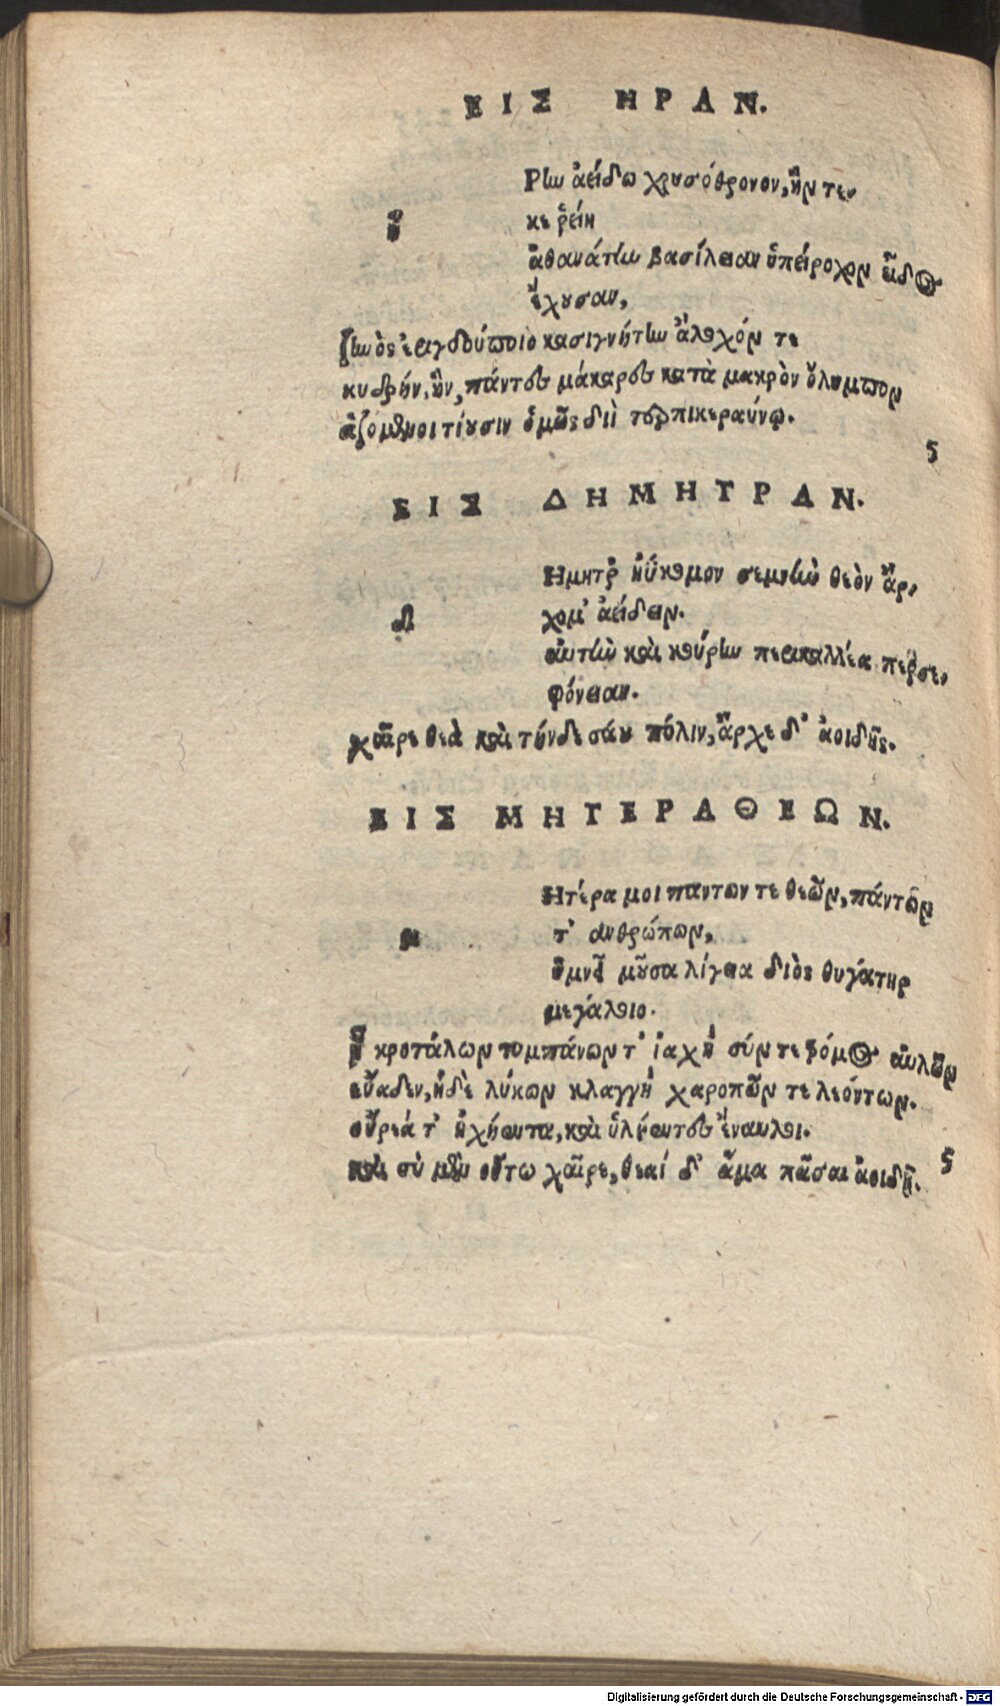 ΕΙΣ ΗΡΑΝ.
ἥ
Ρἰω ἀείδω χρυσόθρονον, ἣν τε,
κε ῥείη
ἀθανάτἰω βασίλειαν ὑπείροχον εἶδος
ἔχουσαν,
ζἰωὸς ἐριγδούποιο κασιγνήτἰω ἄλοχόν τε
κυδρήν, ἣν, πάντες μάκαρες κατὰ μακρὸν ὄλυμπον
ἀζόμενοι τίουσιν ὁμῶς διὶ τερπικεραύνῳ.
5
ΕΙΣ ΔΗΜΗΤΡΑΝ.
Δ
Ημητρ ἠΰκομον σεμνἰὼ θεὸν ἄρ,
χομ' ἀείδειν.
αὐτἰὼ καὶ κούρἰω περικαλλέα περσε,
φόνειαν.
χαῖρε θεὰ καὶ τήνδε σάου πόλιν, ἄρχε δ' ἀοιδῆς.
ΕΙΣ ΜΗΤΕΡΑ ΘΕΩΝ.
μ
Ητέρα μοι παντων τε θεῶν, πάντων
τ' ἀνθρώπων,
ὕμνει μοῦσα λίγεια διὸς θυγάτηρ
μεγάλοιο.
ᾗ κροτάλων τυμπάνων τ' ἰαχὴ σύν τε βρόμος αὐλῶν
εὔαδεν, ἠδὲ λύκων κλαγγὴ χαροπῶν τε λεόντων.
οὔρεά τ' ἠχήεντα, καὶ ὑλήεντες ἔναυλοι.
καὶ σὺ μὲν οὕτω χαῖρε, θεαί δ' ἅμα πᾶσαι ἀοιδῇ.
5
Digitalisierung gefördert durch die Deutsche Forschungsgemeinschaft - DFG